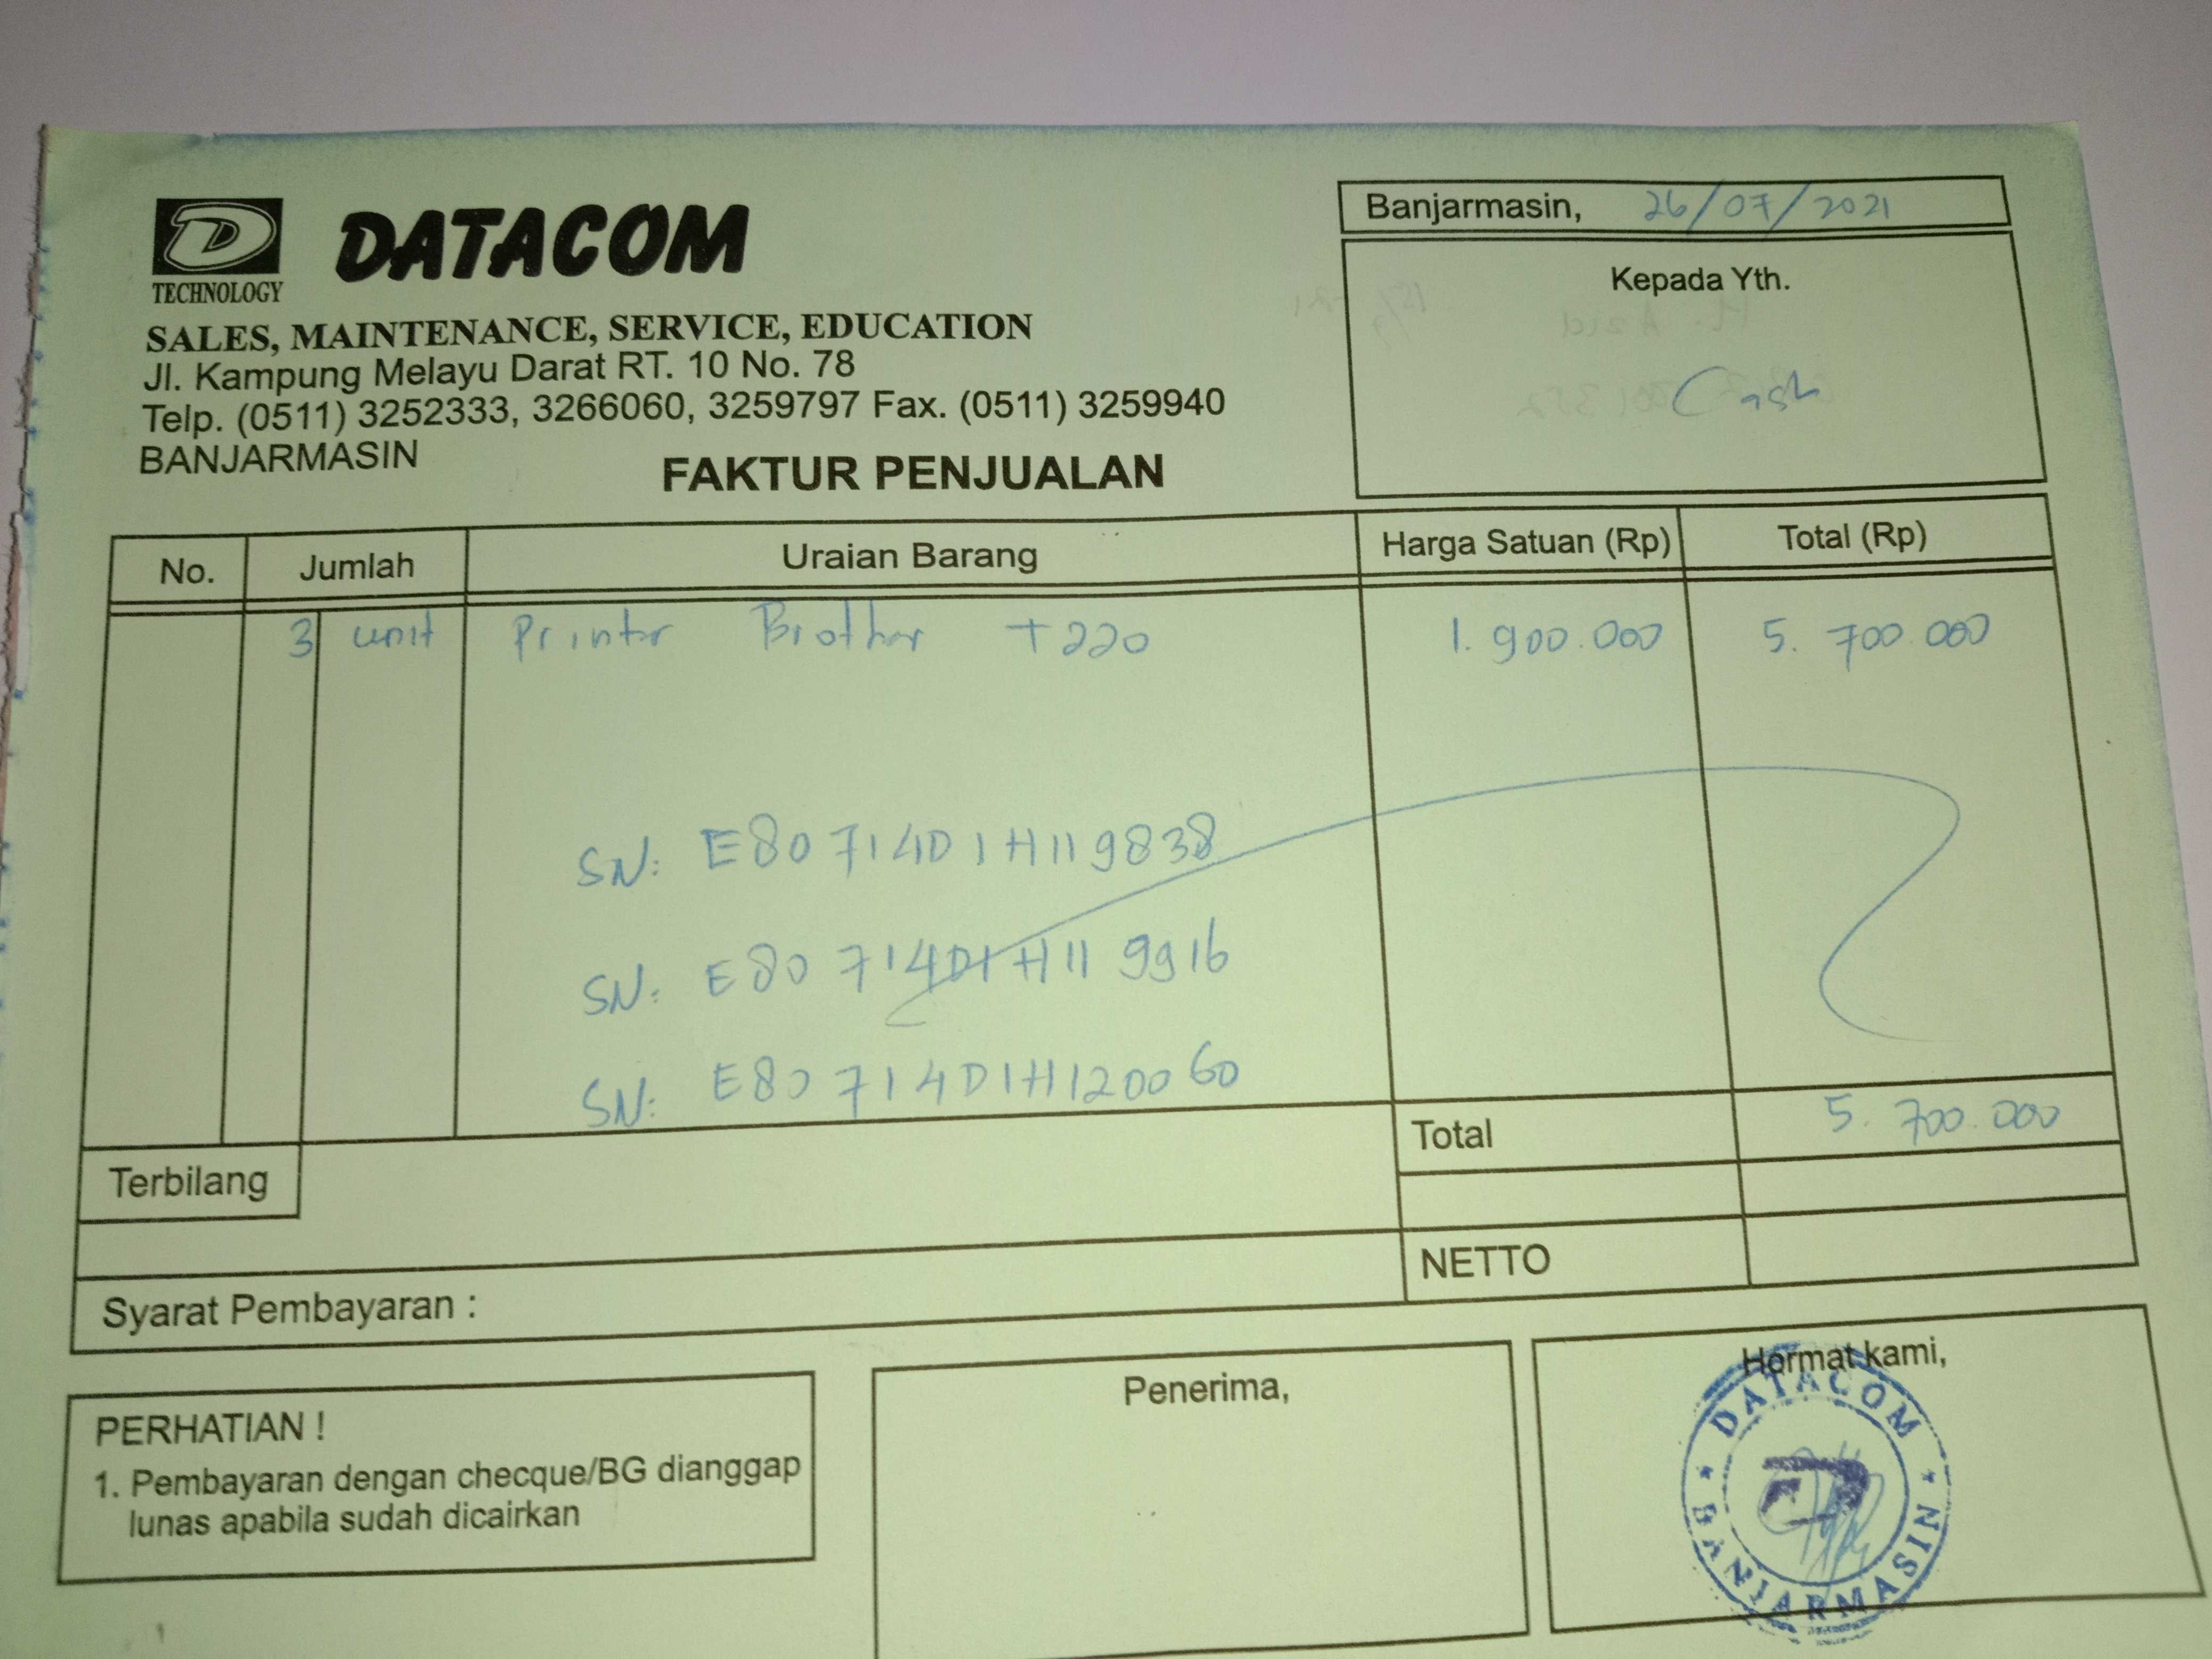 D
TECHNOLOGY
DATACOM
SALES, MAINTENANCE, SERVICE, EDUCATION
Jl. Kampung Melayu Darat RT. 10 No. 78
Telp. (0511) 3252333, 3266060, 3259797 Fax. (0511) 3259940
BANJARMASIN
FAKTUR PENJUALAN
Banjarmasin, 26/07/2021
Kepada Yth.
Cash
No. Jumlah Uraian Barang Harga Satuan (Rp) Total (Rp)
3 unit Printer Brother T220 1.900.000 5.700.000
SN: E80714D1H119838
SN: E80714D1H119916
SN: E80714D1H120060
Total 5.700.000
Terbilang
NETTO
Syarat Pembayaran :
PERHATIAN !
1. Pembayaran dengan checque/BG dianggap
lunas apabila sudah dicairkan
Penerima,
Hormat kami,
DATACOM
BANJARMASIN